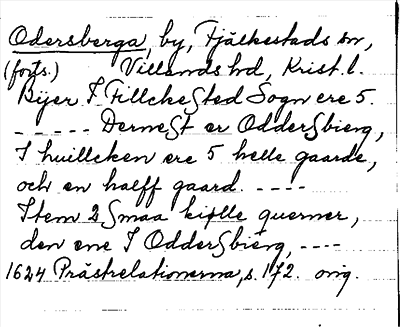 Odersberga, by, Fjälkestads sn,
(forts.) Villands hd, Krist. l.
Bÿer I Fillchested Sogn ere 5.
- - - - - Dernest er Oddersbierg,
I huillcken ere 5 helle gaarde,
och en halff gaard. - - - -
Item 2 smaa kiølle querner,
den ene I Oddersbierg, - - - -
1624 Prästrelationerna, s. 172. orig.